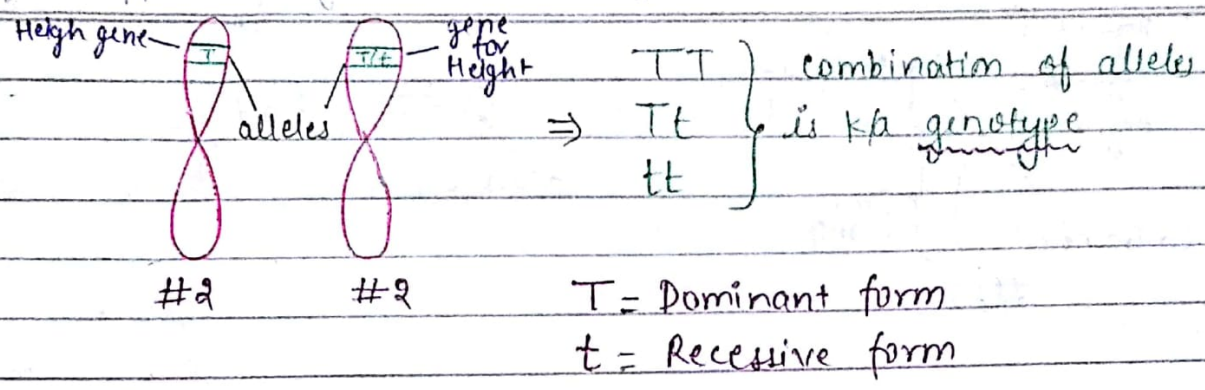 Heigh gene
T
T/t
gene
for
Height
alleles
⇒
TT
Tt
tt
combination of alleles
is k/a genotype
#2
#2
T = Dominant form
t = Recessive form